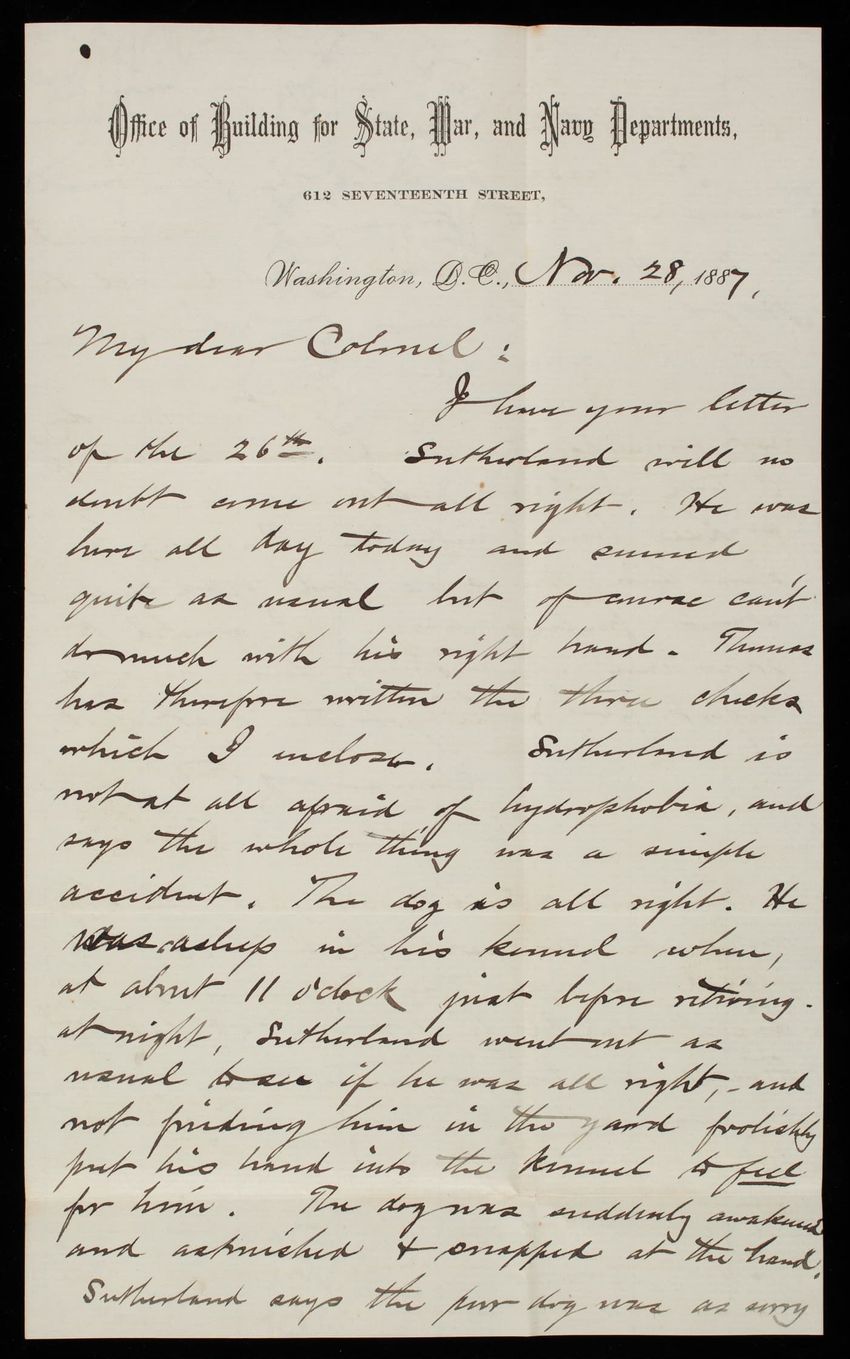 Office of Building for State, War, and Navy Departments,
612 SEVENTEENTH STREET,
Washington, D.C., Nov. 28, 1887,
My dear Colonel :
I have your letter
of the 26th. Sutherland will no
doubt come out all right. He was
here all day today and seemed
quite as usual but of course can't
do much with his right hand. Thomas
has therefore written the three checks
which I inclose. Sutherland is
not at all afraid of hydrophobia, and
says the whole thing was a simple
accident. The dog is all right. He
was asleep in his kennel when,
at about 11 o'clock just before retiring
at night, Sutherland went out as
usual to see if he was all right, - and
not finding him in the yard foolishly
put his hand into the kennel to feel
for him. The dog was suddenly awakened
and astonished & snapped at the hand.
Sutherland says the poor dog was as sorry